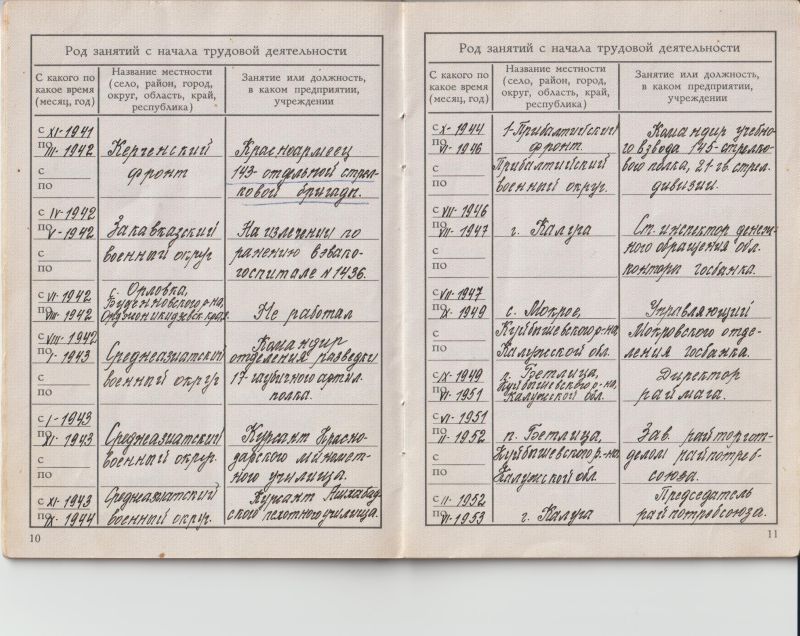 Род занятий с начала трудовой деятельности
С какого по
какое время
(месяц, год)
Название местности
(село, район, город,
округ, область, край,
республика)
Занятие или должность,
в каком предприятии,
учреждении
с XI-1941
по III-1942
с
по
Керченский
фронт
Красноармеец
143-отдельной стрел-
ковой бригады.
с IV-1942
по V-1942
с
по
Закавказский
военный округ
На излечении по
ранению в эвако-
госпитале N 1436.
с VI-1942
по VIII-1942
с. Орловка,
Буденновского р-на,
Орджоникидзевск. края.
Не работал
с VIII-1942
по I-1943
с
по
Среднеазиатский
военный округ
Командир
отделения разведки
17-гаубичного артил.
полка.
с I-1943
по XI-1943
с
по
Среднеазиатский
военный округ.
Курсант Красно-
дарского миномет-
ного училища.
с XI-1943
по IX-1944
Среднеазиатский
военный округ.
Курсант Ашхабад-
ского пехотного училища.
10
Род занятий с начала трудовой деятельности
С какого по
какое время
(месяц, год)
Название местности
(село, район, город,
округ, область, край,
республика)
Занятие или должность,
в каком предприятии,
учреждении
с X-1944
по VI-1946
с
по
1-Прибалтийский
фронт.
Прибалтийский
военный округ.
Командир учебно-
го взвода 145-стрелко-
вого полка, 21-гв. стрел.
дивизии.
с VII-1946
по VII-1947
с
по
г. Калуга
Ст. инспектор денеж-
ного обращения обл.
конторы госбанка.
с VII-1947
по IX-1949
с
по
с. Мокрое,
Куйбышевского р-на
Калужской обл.
Управляющий
Мокровского отде-
ления госбанка.
с IX-1949
по VI-1951
п. Бетлица,
Куйбышевского р-на,
Калужской обл.
Директор
раймага.
с VI-1951
по II-1952
с
по
п. Бетлица,
Куйбышевского р-на,
Калужской обл.
Зав. райторгот-
делом райпотреб-
союза.
с II-1952
по VI-1953
г. Калуга
Председатель
райпотребсоюза.
11